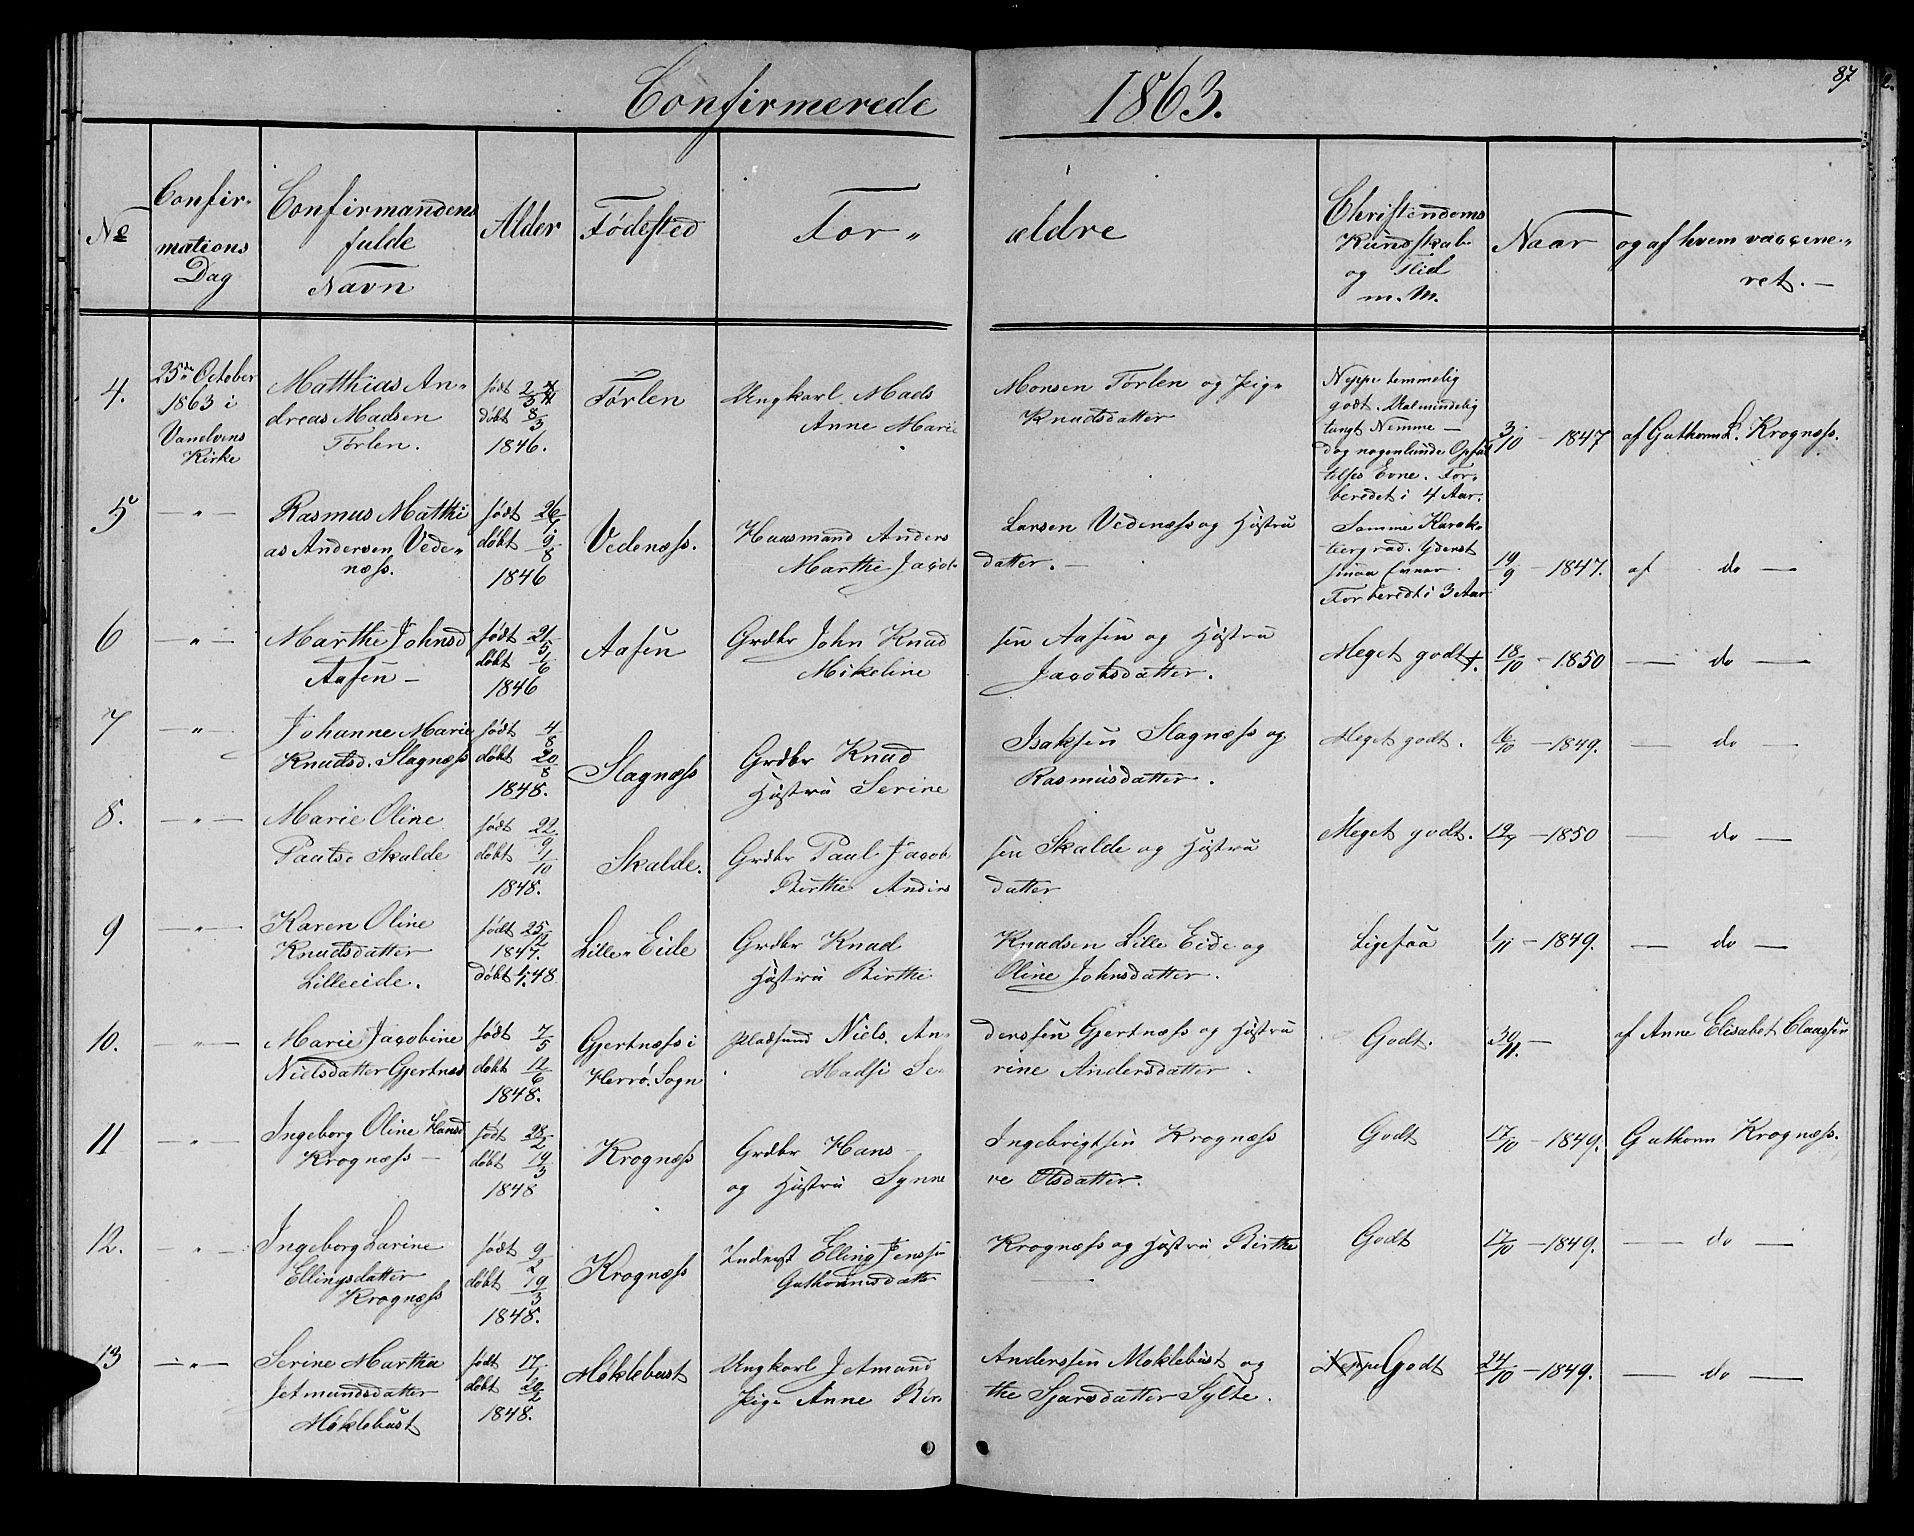 87
Confirmerede 1863.
No
Confir-
mations
Dag
Confirmandens
fulde
Navn
Alder
Fødested
For-
ældre
Christendoms
Kundskab
og Flid
m. M.
Naar
og af hvem vaccine-
ret. —
4.
25de October
1863 i
Vanelvens
Kirke
Matthias An-
dreas Madsen
Førlen.
født
døbt 8/3
1846.
Førlen
Ungkarl Mads Monsen Førlen og Pige
Anne Marie Knudsdatter
Neppe temmelig
godt. Ualmindelig
tungt Nemme —
dog nogenlunde Opfat
telses Evne. For-
beredet i 4 Aar.
3/10 — 1847
af Guthorm L. Krognæss.
5
— " —
Rasmus Matthi
as Andersen Vede-
næss.
født 26/7
døbt 9/8
1846
Vedenæss.
Huusmand Anders Larsen Vedenæss og Hustru
Marthe Jacobs datter. —
Samme Karak-
teergrad. Yderst
smaa Evner.
Forberedt i 3 Aar
19/9 — 1847.
af do —
6
— " —
Marthe Johnsd
Aasen —
født 21/5
døbt 1/6
1846
Aasen
Grdbr John Knud sen Aasen og Hustru
Mikeline Jacobsdatter.
Meget godt.
18/10 — 1850
— do —
7
— " —
Johanne Marie
Knudsd. Slagnæss
født 4/8
døbt 20/8
1848.
Slagnæss
Grdbr Knud Isaksen Slagnæss og
Hustru Serine Rasmusdatter.
Meget godt.
16/10 — 1849.
— do —
8.
— " —
Marie Oline
Paulsd Skalde
født 22/9
døbt 1/10
1848.
Skalde.
Grdbr Paul Jacob sen Skalde og Hustru
Birthe Anders datter
Meget godt.
— 1850
— do —
9
— " —
Karen Oline
Knudsdatter
Lilleeide.
født
1847.
døbt 48
Lille- Eide
Grdbr Knud Knudsen Lille Eide og
Hustru Birthe Oline Johnsdatter.
Ligesaa
1/11 — 1849.
— do —
10.
— " —
Marie Jacobine
Nielsdatter Gjertnæs
født 7/5
døbt 12/6
1848.
Gjertnæss i
Herrø. Sogn
Pladsmand Niels An derssen Gjertnæss og Hustru
Madsi Se rine Andersdatter.
Godt.
30/11. —
af Anne Elisabet Claassen
11
— " —
Ingeborg Oline Hansd
Krognæss —
født 28/2
døbt 19/3
1848
Krognæss
Grdbr Hans — Ingebrigtsen Krognæss
og Hustru Synne ve Olsdatter.
Godt
17/10 — 1849.
Guthorm Krognæss.
12.
— " —
Ingeborg Larine
Ellingsdatter
Krognæss
født 9/2
døbt 19/3
1848.
Krognæss
Inderst Elling Jenssen Krognæss og Hustru Birthe
Guthormsdatter
Godt
17/10 — 1849.
— do —
13
— " —
Serine Martha
Jetmundsdatter
Møklebust
født 17/1
døbt 20/2
1848.
Møklebust
Ungkarl Jetmund Anderssen Møklebust og
Pige Anne Bir the Sjursdatter Sylte.
Neppe Godt
24/10 — 1849.
— do —